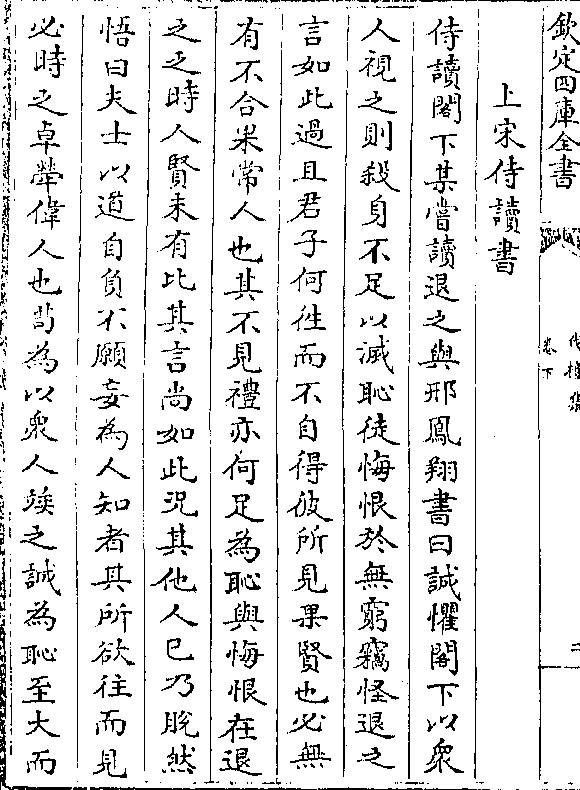 欽定四庫全書
伐檀集
卷下
二
上宋侍讀書
侍讀閣下某嘗讀退之與邢鳳翔書曰誠懼閣下以衆
人視之則殺身不足以滅恥徒悔恨於無窮竊怪退之
言如此過且君子何徃而不自得彼所見果賢也必無
有不合果常人也其不見禮亦何足為恥與悔恨在退
之之時人賢未有比其言尚如此況其他人已乃脫然
悟曰夫士以道自負不願妄為人知者其所欲往而見
必時之卓犖偉人也苟為以衆人竢之誠為恥至大而